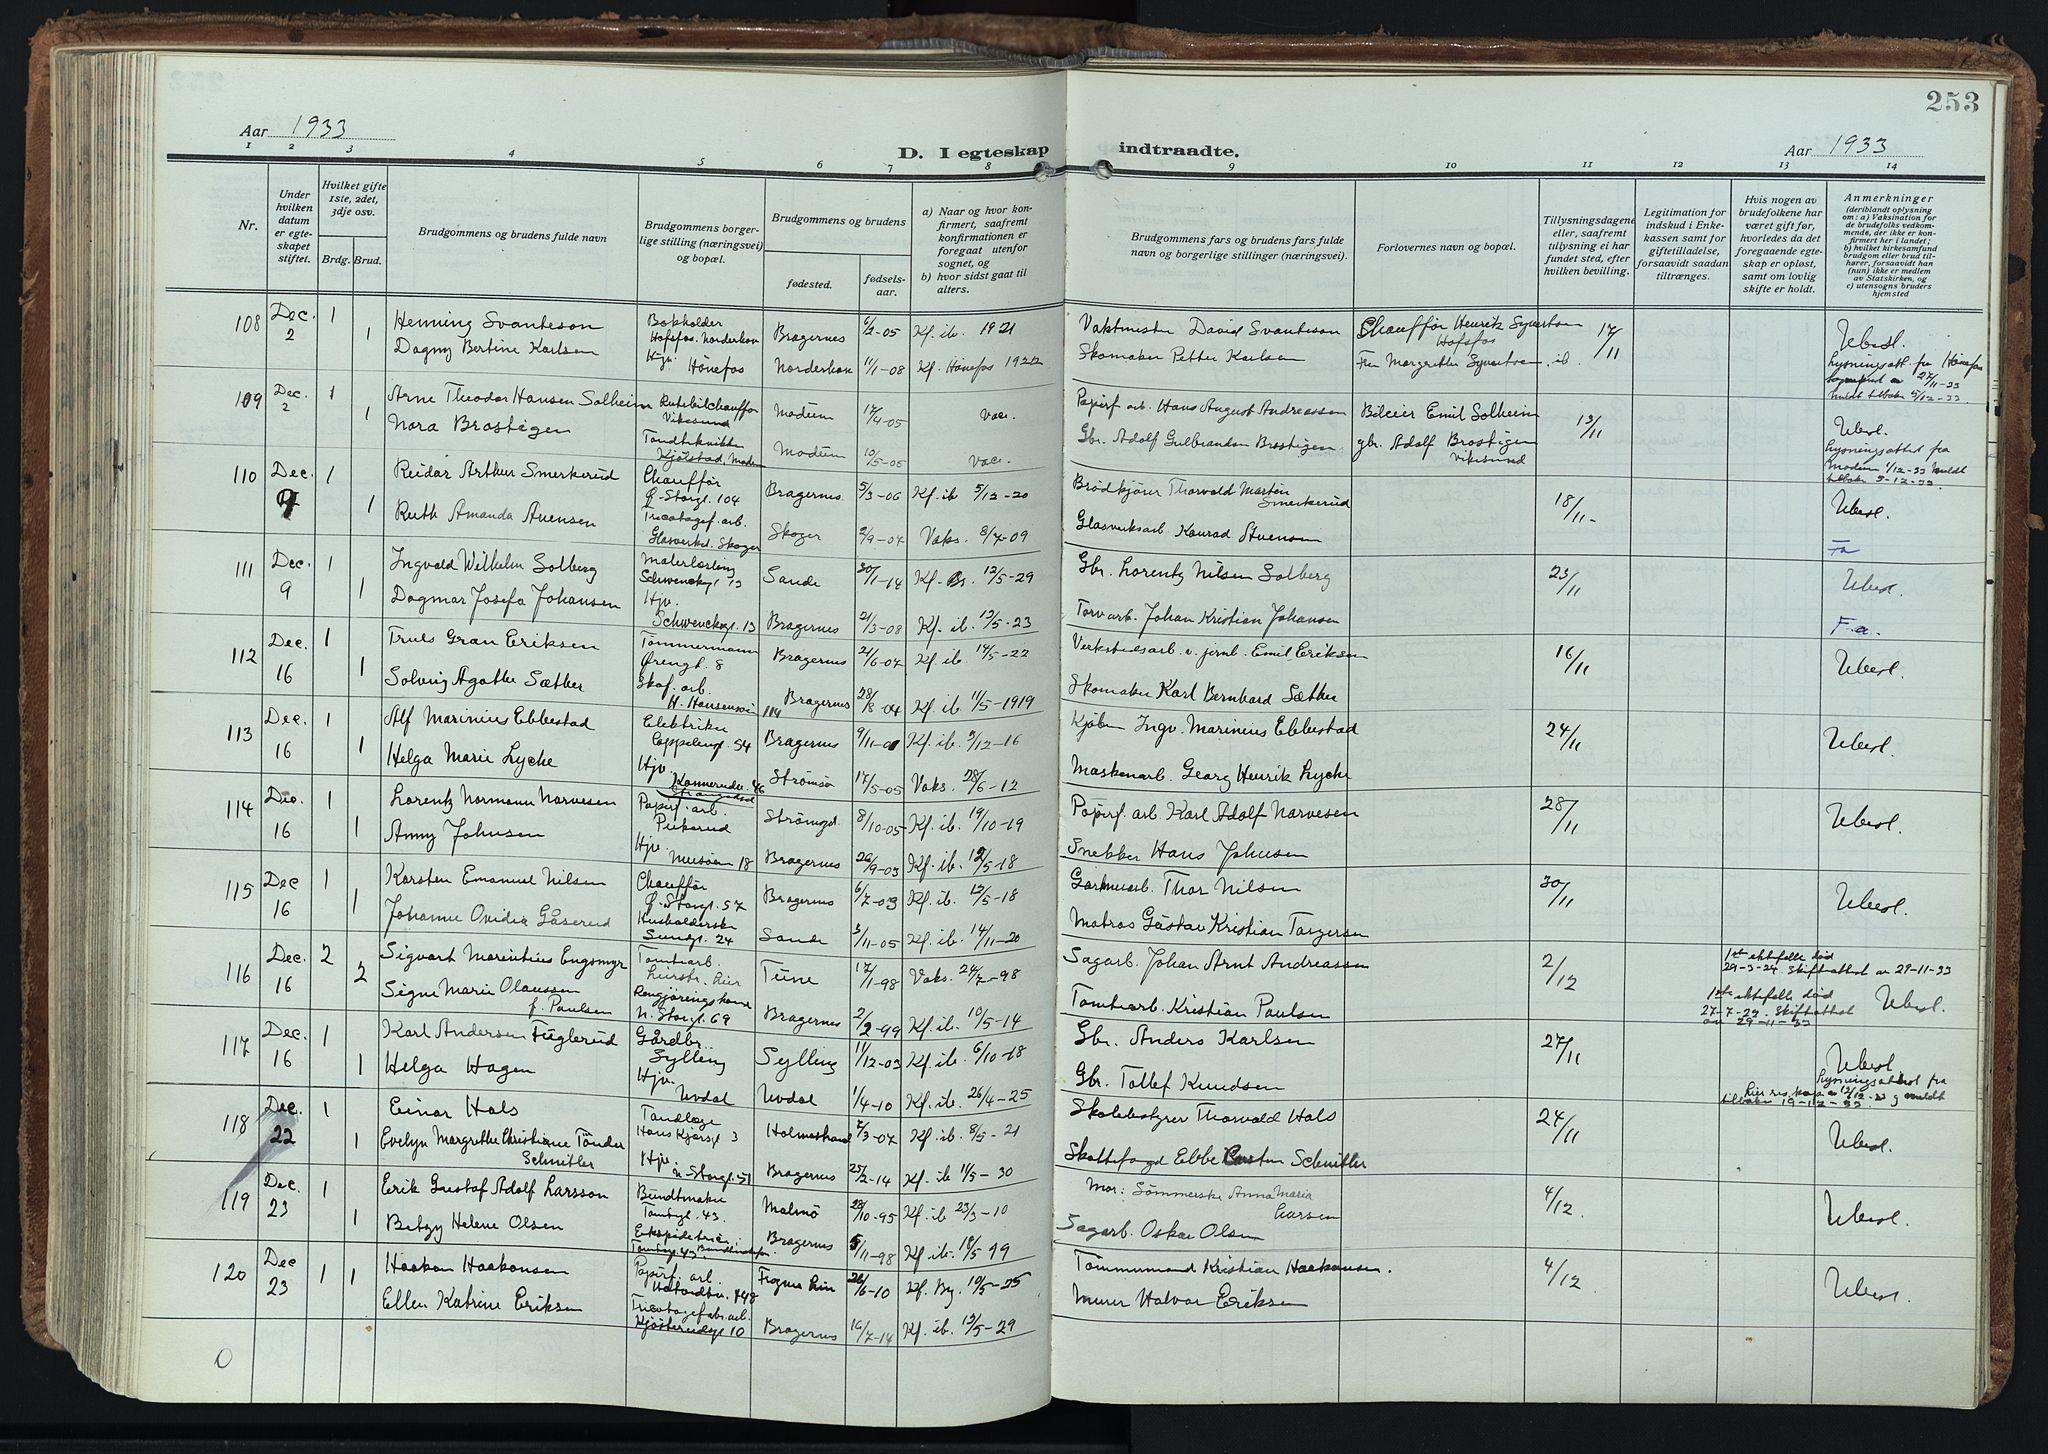 253
Aar 1933
D. I egteskap indtraadte.
Aar 1933
1 2 3 4 5 6 7 8 9 10 11 12 13 14
Nr.
Under hvilken datum er egteskapet stiftet.
Hvilket gifte 1ste, 2det, 3dje osv.
Brdg. Brud.
Brudgommens og brudens fulde navn
Brudgommens borgerlige stilling (næringsvei) og bopæl.
Brudgommens og brudens
fødested. fødselsaar.
a) Naar og hvor konfirmert, saafremt konfirmationen er foregaat utenfor sognet, og
b) hvor sidst gaat til alters.
Brudgommens fars og brudens fars fulde navn og borgerlige stillinger (næringsvei).
Forlovernes navn og bopæl.
Tillysningsdagene eller, saafremt tillysning ei har fundet sted, efter hvilken bevilling.
Legitimation for indskud i Enkekassen samt for giftetilladelse, forsaavidt saadan tiltrænges.
Hvis nogen av brudefolkene har været gift før, hvorledes da det foregaaende egteskap er opløst, samt om lovlig skifte er holdt.
Anmerkninger
(deriblandt oplysning om: a) Vaksination for de brudefolks vedkommende, der ikke er konfirmert her i landet; b) hvilket kirkesamfund brudgom eller brud tilhører, forsaavidt han (hun) ikke er medlem av Statskirken, og c) utensogns bruders hjemsted
108 Dec. 2 1 Henning Svanteson Bokholder Hofsfos. Norderhov Bragernes 6/2-05 Kf. ib. 1921 Vaktmester David Svanteson Chauffør Henrik Syvertsen Hofsfos 17/11 Ubesl.
1 Dagny Bertine Karlsen Hjv. Hønefos Norderhov 11/1-08 Kf. Hønefos 1922 Skomaker Petter Karlsen Fru Margrethe Syvertsen ib. Lysningsatt. fra Hønefos 27/11-33
109 Dec. 2 1 Arne Theodor Hansen Solheim Rutebilchauffør Vikesund Modum 17/4-05 Vac. Papirf. arb. Hans August Andreassen Bileier Emil Solheim 13/11 Ubesl.
1 Nora Brostigen Kjølstad, Modum Modum 10/5-05 Vac. Gbr. Adolf Gulbrandsen Brostigen gbr. Adolf Brostigen Vikesund Lysningsattest fra Modum 1/12-33
110 Dec. 9 1 Reidar Arthur Smerkerud Chauffør Ø. Storgt. 104 Bragernes 5/3-06 Kf. ib 5/12-20 Brødkjører Thorvald Martin Smerkerud 18/11- Ubesl.
1 Ruth Amanda Avensen Tricotagef. arb. Glasverket. Skoger Skoger 2/9-07 Vaks. 8/7-09 Glasverksarb. Konrad Avensen Fa
111 Dec. 9 1 Ingvald Wilhelm Solberg Malerlærling Schwenckegt 13 Sande 30/1-14 Kf. Bs. 12/5-29 Gbr. Lorentz Nilsen Solberg 23/11 Ubesl.
1 Dagmar Josefa Johansen Hjv. Schwenckegt. 13 Bragernes 21/3-08 Kf. ib. 13/5-23 Torvarb. Johan Kristian Johansen F.a.
112 Dec. 16 1 Truls Gran Eriksen Tømmermann Ørengt. 8 Bragernes 21/6-07 Kf. ib. 14/5-22 Verkstedsarb. v. jernb. Emil Eriksen 16/11 Ubesl.
1 Solveig Agathe Sæther Skof. arb. H. Hansensvei 114 Bragernes 28/8-04 Kf. ib. 11/5-1919 Skomaker Karl Bernhard Sæther
113 Dec. 16 1 Alf Marinius Ebbestad Elektriker Cappelengt. 54 Bragernes 9/11-01 Kf. ib. 3/12-16 Kjøbm. Ingv. Marinius Ebbestad 24/11 Ubesl.
1 Helga Marie Lyche Hjv. Konnerudv. 46 Strømsø 17/5-05 Vaks. 28/6-12 Maskinarb. Georg Henrik Lyche
114 Dec. 16 1 Lorentz Normann Narvesen Papirf. arb. Pukerud Strømgd. 8/10-05 Kf. ib. 19/10-19 Papirf. arb. Karl Adolf Narvesen 28/11 Ubesl.
1 Anny Johnsen Hjv. Museum 18 Bragernes 26/9-03 Kf. ib. 12/5-18 Snekker Hans Johnsen
115 Dec 16 1 Karsten Emanuel Nilsen Chauffør Ø. Storgt. 57 Bragernes 6/7-03 Kf. ib. 12/5-18 Thor Nilsen 30/11 Ubesl.
1 Johanne Ovidia Gåserud Husholderske Sundgt. 24 Sande 3/11-05 Kf. ib. 14/11-20 Matros Gustav Kristian Torgersen
116 Dec. 16 2 Sigvart Marentius Engsmyr Tomtearb. Lierstr. Lier Tune 17/1-98 Vaks. 24/7-98 Sagarb. Johan Arnt Andreassen 2/12 1st ektefelle død 29-3-24. Skifteattest av 29-11-33
2 Signe Marie Olaussen f. Paulsen Rengjøringskone N. Storgt. 69 Bragernes 2/2-99 Kf. ib. 10/5-14 Tomtearb. Kristian Paulsen 1ste ektefelle død 27-7-29. Skifteattest av 29-11-33 Ubesl.
117 Dec. 16 1 Karl Andersen Fuglerud Gårdbr. Sylling Sylling 11/12-03 Kf. ib. 6/10-18 Gbr. Anders Karlsen 27/11 Ubesl.
1 Helga Hagen Hjv. Uvdal Uvdal 1/4-10 Kf. ib. 26/4-25 Gbr. Tollef Knudsen Lysningsattest fra Lier tilbake 19-12-33.
118 Dec. 22 1 Einar Hals Tandlæge Hans Kjærsgt. 3 Holmestrand 7/3-07 Kf. ib. 8/5-21 Skolebestyrer Thorvald Hals 24/11 Ubesl.
1 Evelyn Margrethe Christiane Tønder Schnitler Hjv. n. Storgt. 51 Bragernes 25/2-14 Kf. ib. 11/5-30 Skattefogd Ebbe Carsten Schnitler
119 Dec. 23 1 Erik Gustaf Adolf Larsson Buntmaker Tomtegt. 43. Malmø 28/10-95 Kf. ib 23/3-10 Mor: Sømmerske Anna Maria Larsen 4/12. Ubesl.
1 Betzy Helene Olsen Tomtegt. 43 Bragernes 5/11-98 Kf. ib. 18/5 99 Sagarb. Oskar Olsen
120 Dec 23 1 1 Haakon Haakonsen Papirf. arb. Frogner Lier 26/6-10 Kf. By. 10/5-25 Tømmermand Kristian Haakonsen. 4/12 Ubesl.
Ellen Katrine Eriksen Tricotagefabr.arb. Kjøsterudgt 10 Bragernes 16/7-14 Kf. ib. 12/5-29 Murer Halvor Eriksen
0